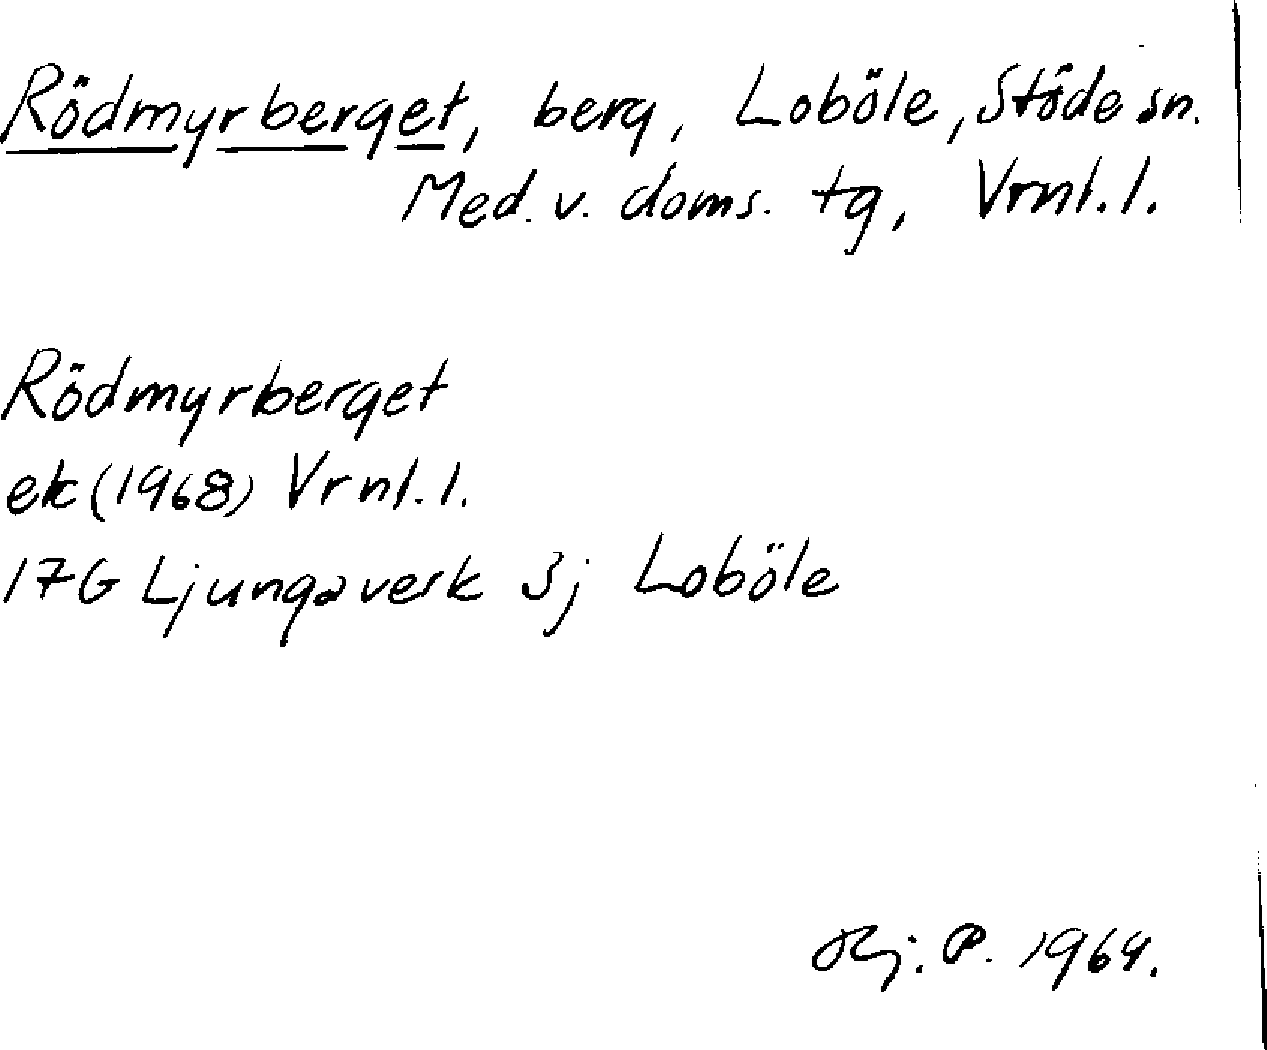 Rödmyrberget, berg, Loböle, Stöde sn.
Med. v. doms. tg, Vrnl. l.
Rödmyrberget
ek (1968) Vrnl. l.
17G Ljungaverk 3j Loböle
Hj. P. 1964.